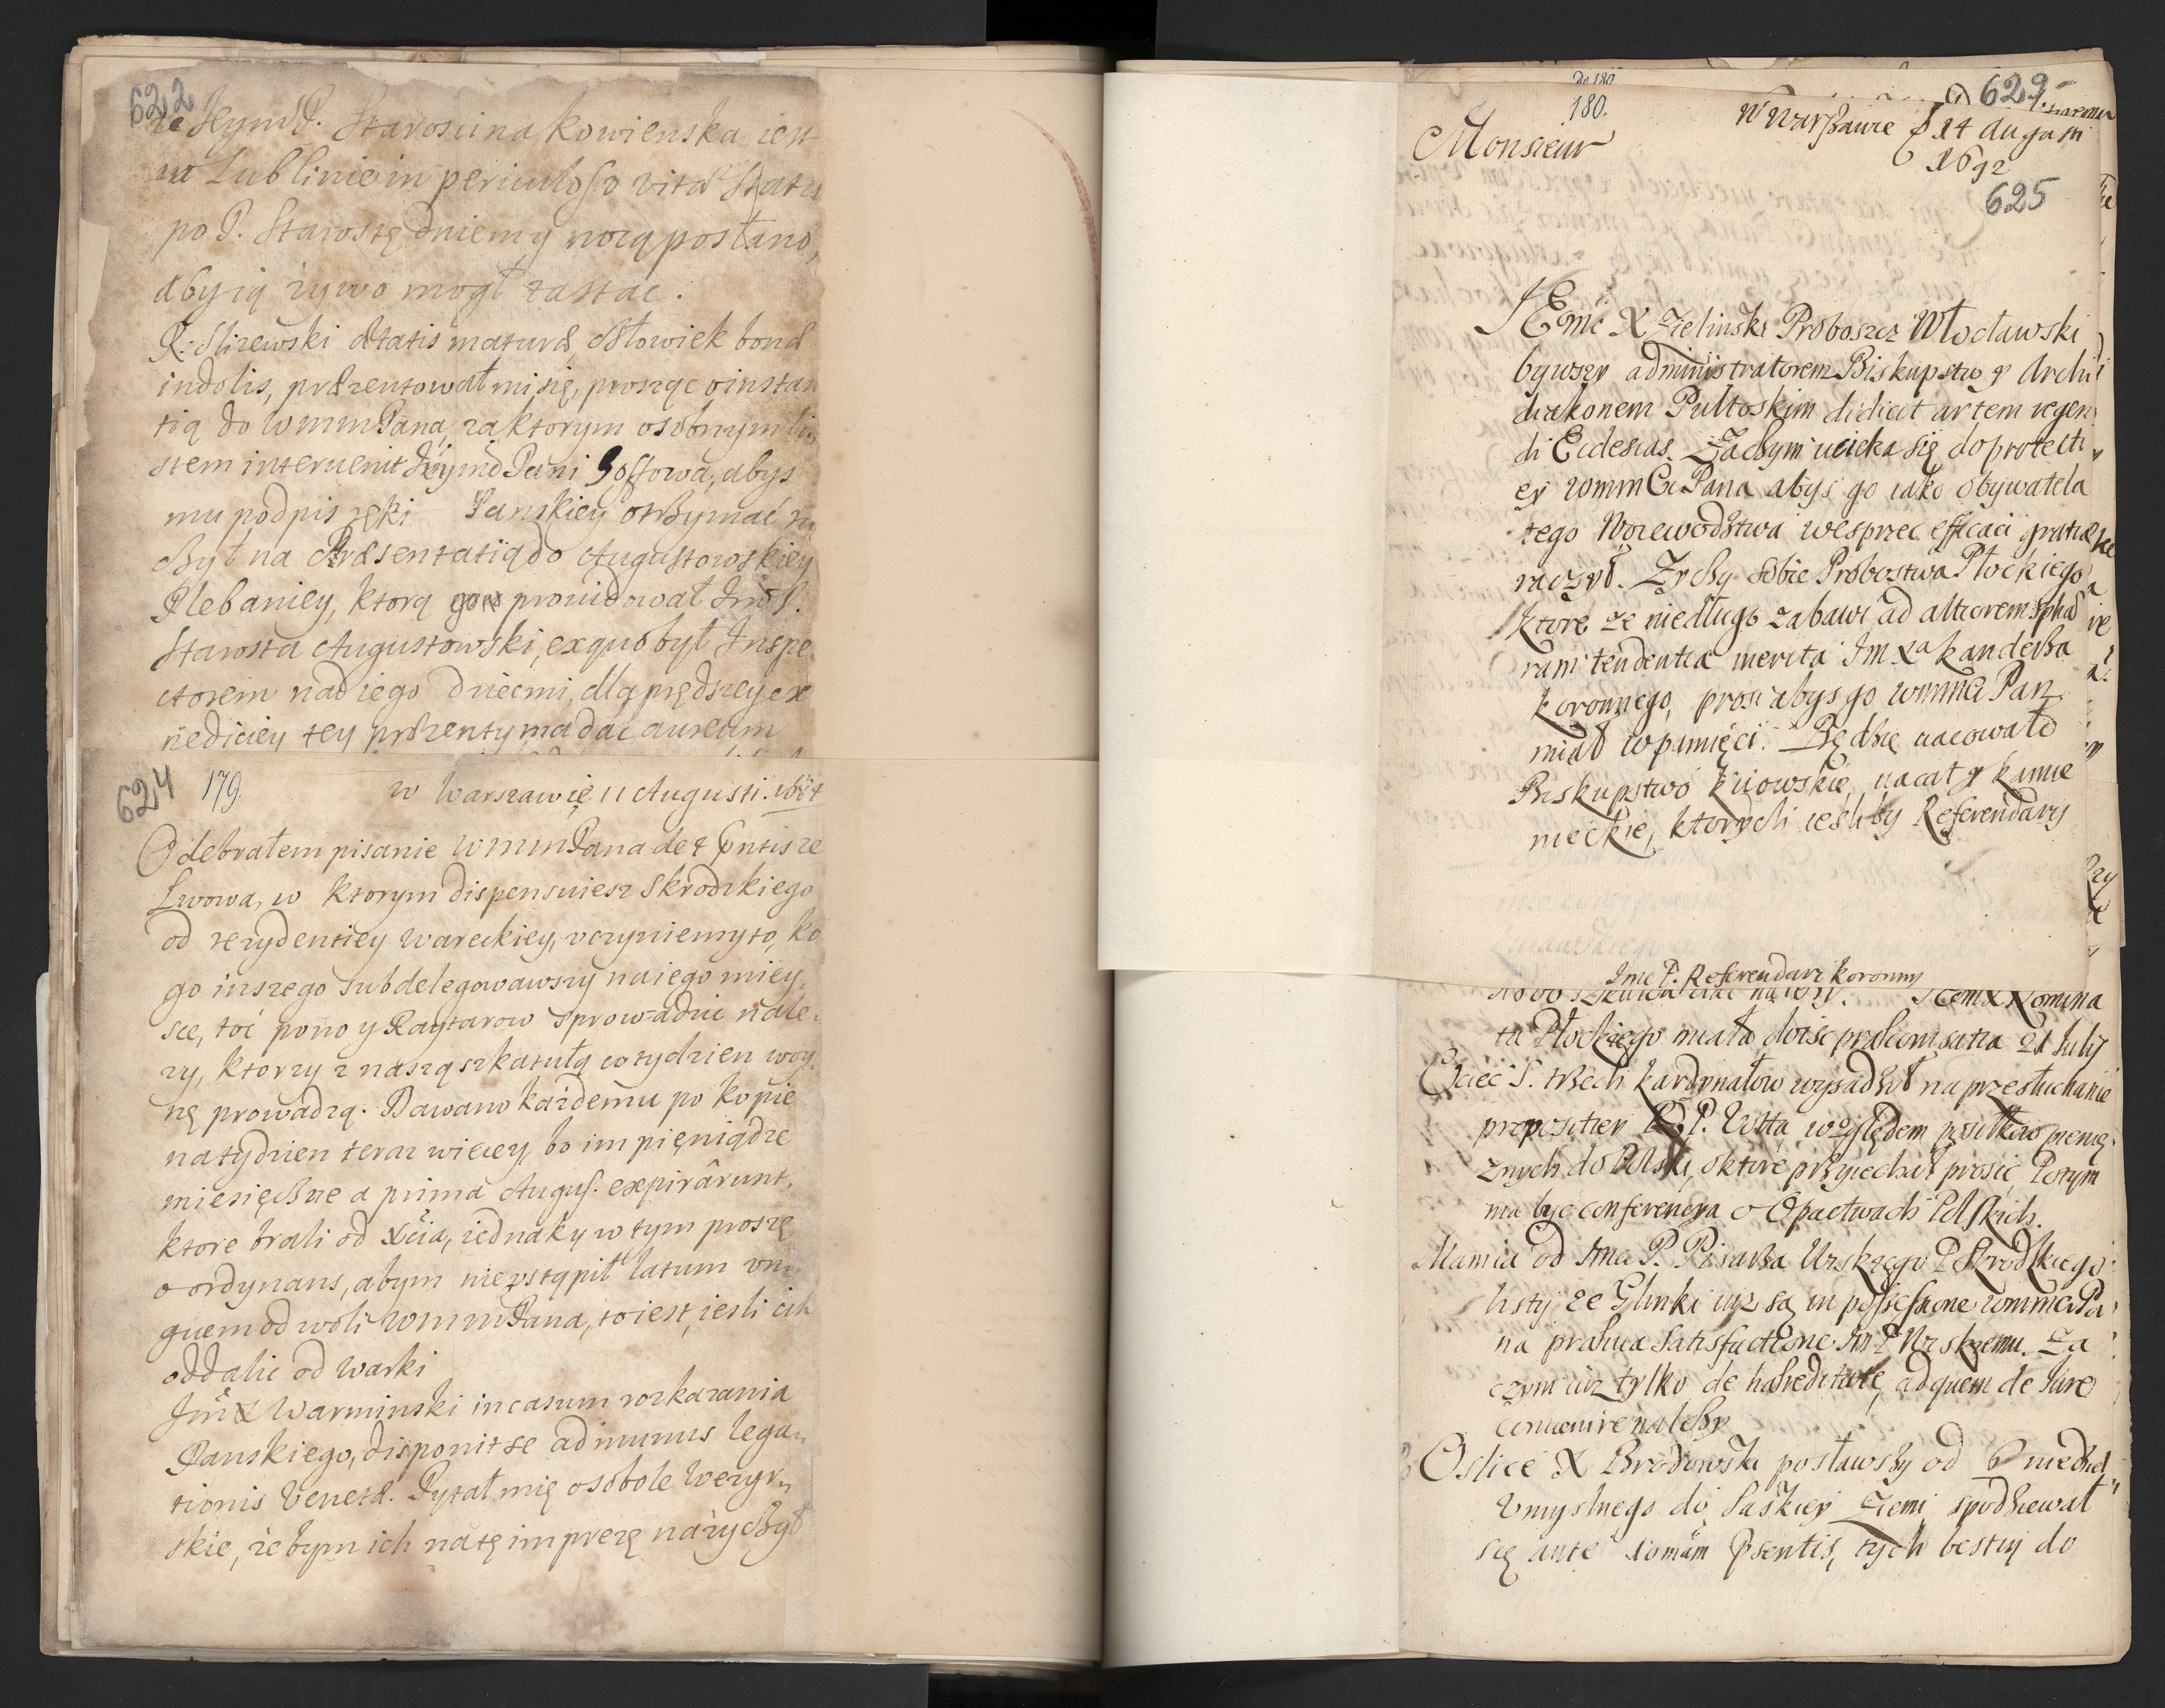 622
że Jeym P. Starościna Kowieńska iest
w Lublinie in periculoso vitæ statu
po P. Starostę dniem y nocą posłano,
aby ią żywo mogł zastać.
X. Slizewski ætatis maturæ, człowiek bonæ
indolis, præzentował mi się, prosząc o instan
tią do WMMPana, za ktorym osobnym li
stem interuenit Jeymć Pani Soffowa, abyś
mu podpis ręki Panskiey otrzymać ra
czył na Præsentatią do Augustowskiey
Plebaniey, ktorą prouidował Jmć P.
Starosta Augustowski, ex quo był Inspe
ctorem nad iego dziecmi, dla prędszey ex
pediciey tey præzenty ma dać auream
624 179. w Warszawie 11 Augusti.
Odebrałem pisanie WMMPana de 7 præsentis ze
Lwowa, w ktorym dispensuiesz Skrodzkiego
od rezydentiey Wareckiey, vczyniemy to, ko
go inszego subdelegowawszy na iego miey,
sce, toć pono y Raytarow sprowadzić nale.
zy, ktorzy z naszą szkatułą co tydzien woy
nę prowadzą. Dawano kazdemu po kopie
na tydzien teraz wiecey, bo im pięniądze
miesięczne a prima Augus. expirârunt,
ktore brali od Xcia, iednak y w tym proszę
o ordynans, abym nie vstąpił latum vn
guem od woli WMMPana, to iest, iesli ich
oddalic od Warki
Jmć X Warminski in casum rozkazania
Panskiego, disponit se ad munus lega
tionis Venetæ. Pytał mię o sobole Wezyr
skie, żebym ich na tę imprezę nazyczył
Do 180
180.
629
W Warszawie d 14 Augusti
1692
Monsieur
625
JEmć X Zielinski Proboszcz Włocławski
bywszy administratorem Biskupstw y Archi
diakonem Pułtoskim didicit artem regen
di Ecclesias. Zaczym ucieka się do protecti
ey WMMCi Pana abyś go iako obywatela
tego Woiewodztwa wesprzec efficaci gratia
raczył. Zyczy sobie Probostwa Płockiego
Ktore ze niedługo zabawi ad altiorem sphæ
ram tendentia merita Jm Xa Kanclerza
Koronnego, prosi abys go WMMCi Pan
miał w pamięci. Będzię uacowało
Biskupstwo Kiiowskie, uacat y Kamie
nieckie, ktorych iesliby Referendarz
Jmc P. Referendarz Koronny
Item X Nomina
ta Płockiego miało doisc præconisatia 21 July
Ociec S. trzech Kardynałow wysadził na przesłuchanie
propositiey P. Votta względem posiłkow pienię
znych do Polski, o ktore przyiechał prosic, Potym
ma byc conferencya o Opactwach Polskich.
Mamia od Jmci P. Pisarza Urskiego P Skrodzkiego
listy ze Glinki iuz są in possessione WMMCi Pa
na præuia satisfactione Jm P Urskiemu. Za
czym iuz tylko de hæreditate, ad quem de iure
conuenire nalezy
Oslice X Brodowski posławszy od 6 niedziel
Umyslnego do Saskiey Ziemi spodziewał
się ante 10mam præsentis, tych bestiy do